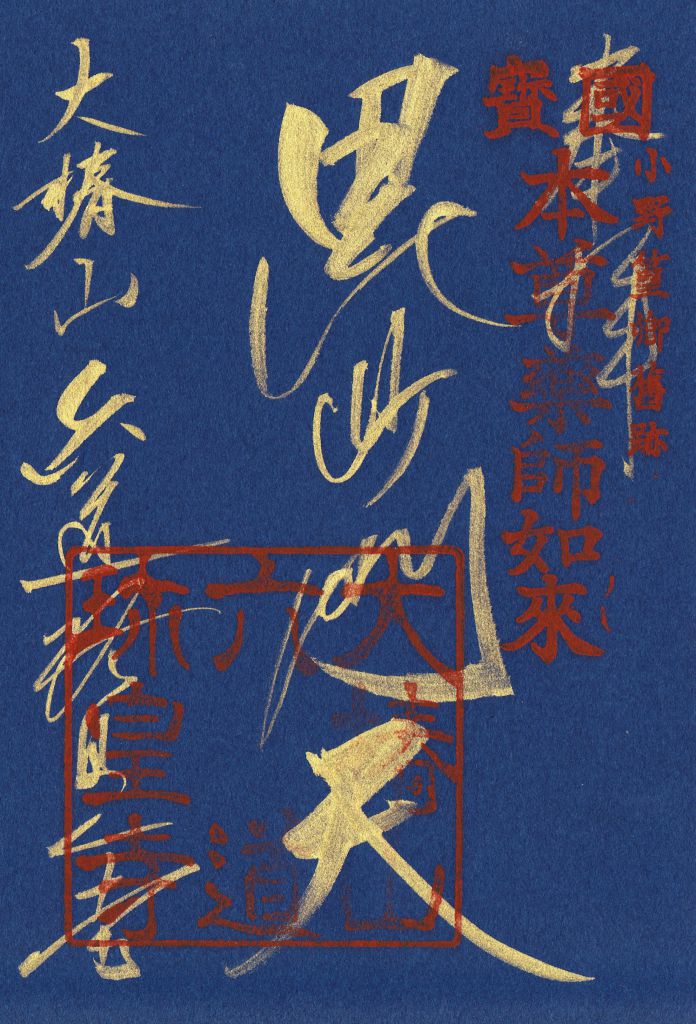 奉拝
小野篁御舊跡
國寶
本尊藥師如來
毘沙門天
大椿山
六道
珎皇寺
大椿山 六道珎皇寺